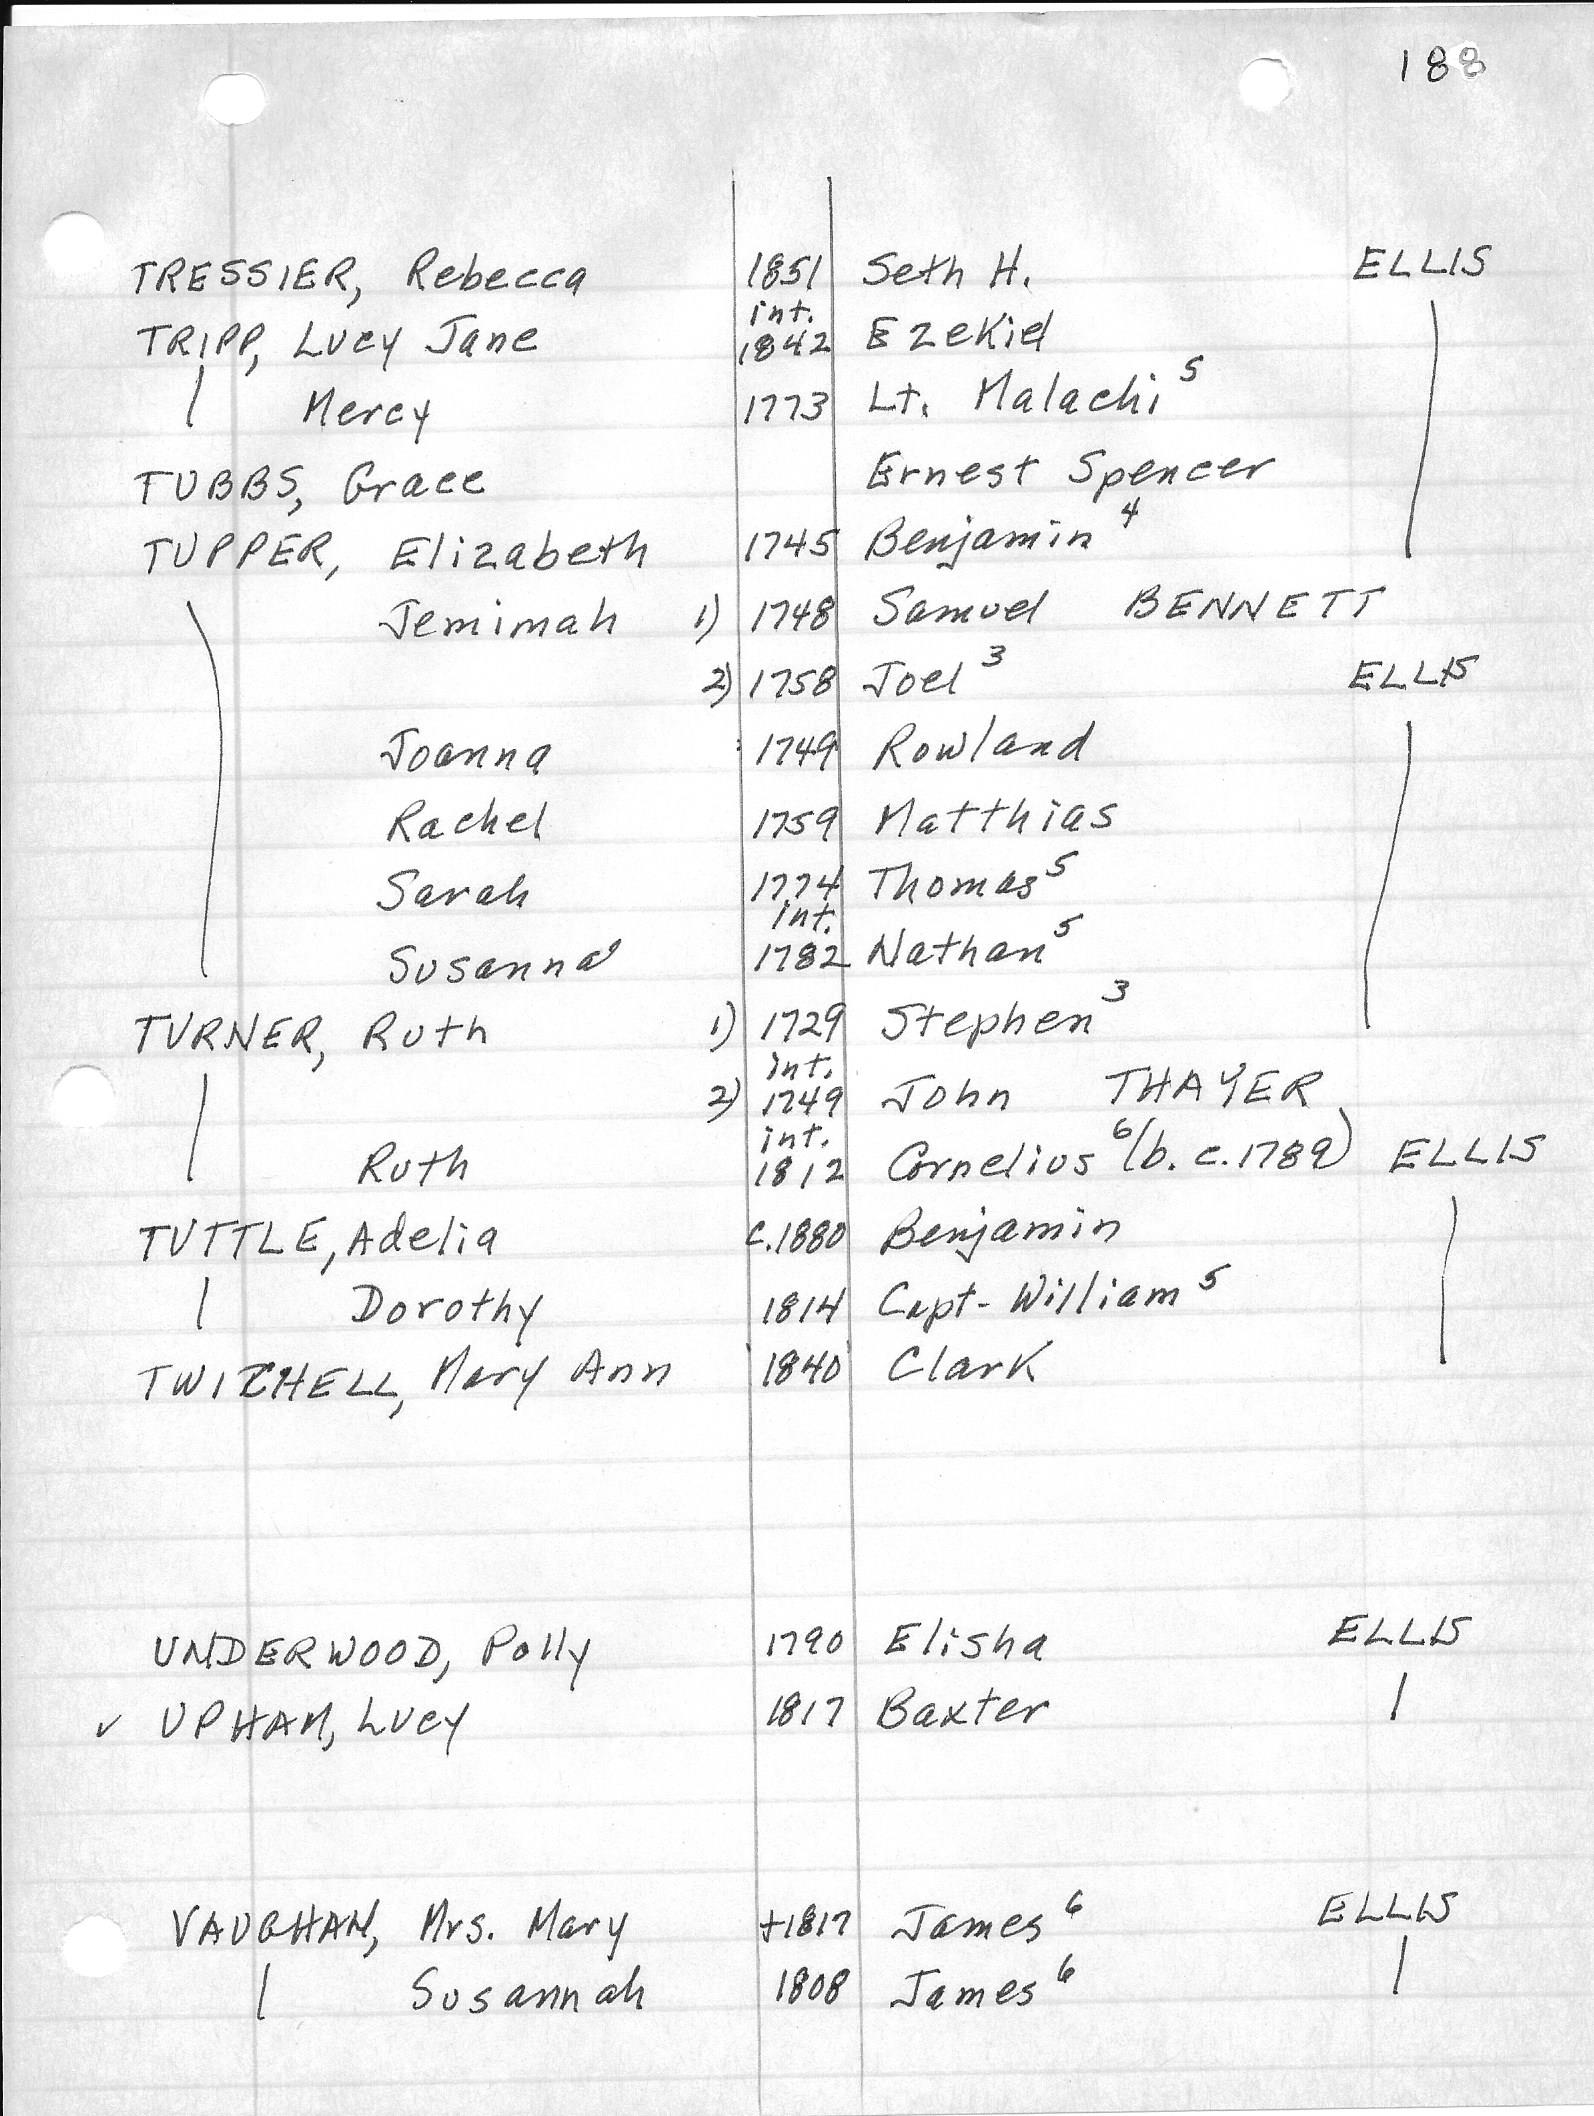 188
TRESSIER, Rebecca 1851 Seth H. ELLIS
int.
TRIPP, Lucy Jane 1842 Ezekiel
Mercy 1773 Lt. Malachi 5
TUBBS, Grace Ernest Spencer
TUPPER, Elizabeth 1745 Benjamin 4
Jemimah 1) 1748 Samuel BENNETT
2) 1758 Joel 3 ELLIS
Joanna 1749 Rowland
Rachel 1759 Matthias
Sarah 1774 Thomas 5
int.
Susanna 1782 Nathan 5
TURNER, Ruth 1) 1729 Stephen 3
int.
2) 1749 John THAYER
int.
Ruth 1812 Cornelius 6 (b. c.1789) ELLIS
TUTTLE, Adelia c.1880 Benjamin
Dorothy 1814 Capt. William 5
TWITCHELL, Mary Ann 1840 Clark
UNDERWOOD, Polly 1790 Elisha ELLIS
✓ UPHAM, Lucy 1817 Baxter
VAUGHAN, Mrs. Mary +1817 James 6 ELLIS
Susannah 1808 James 6